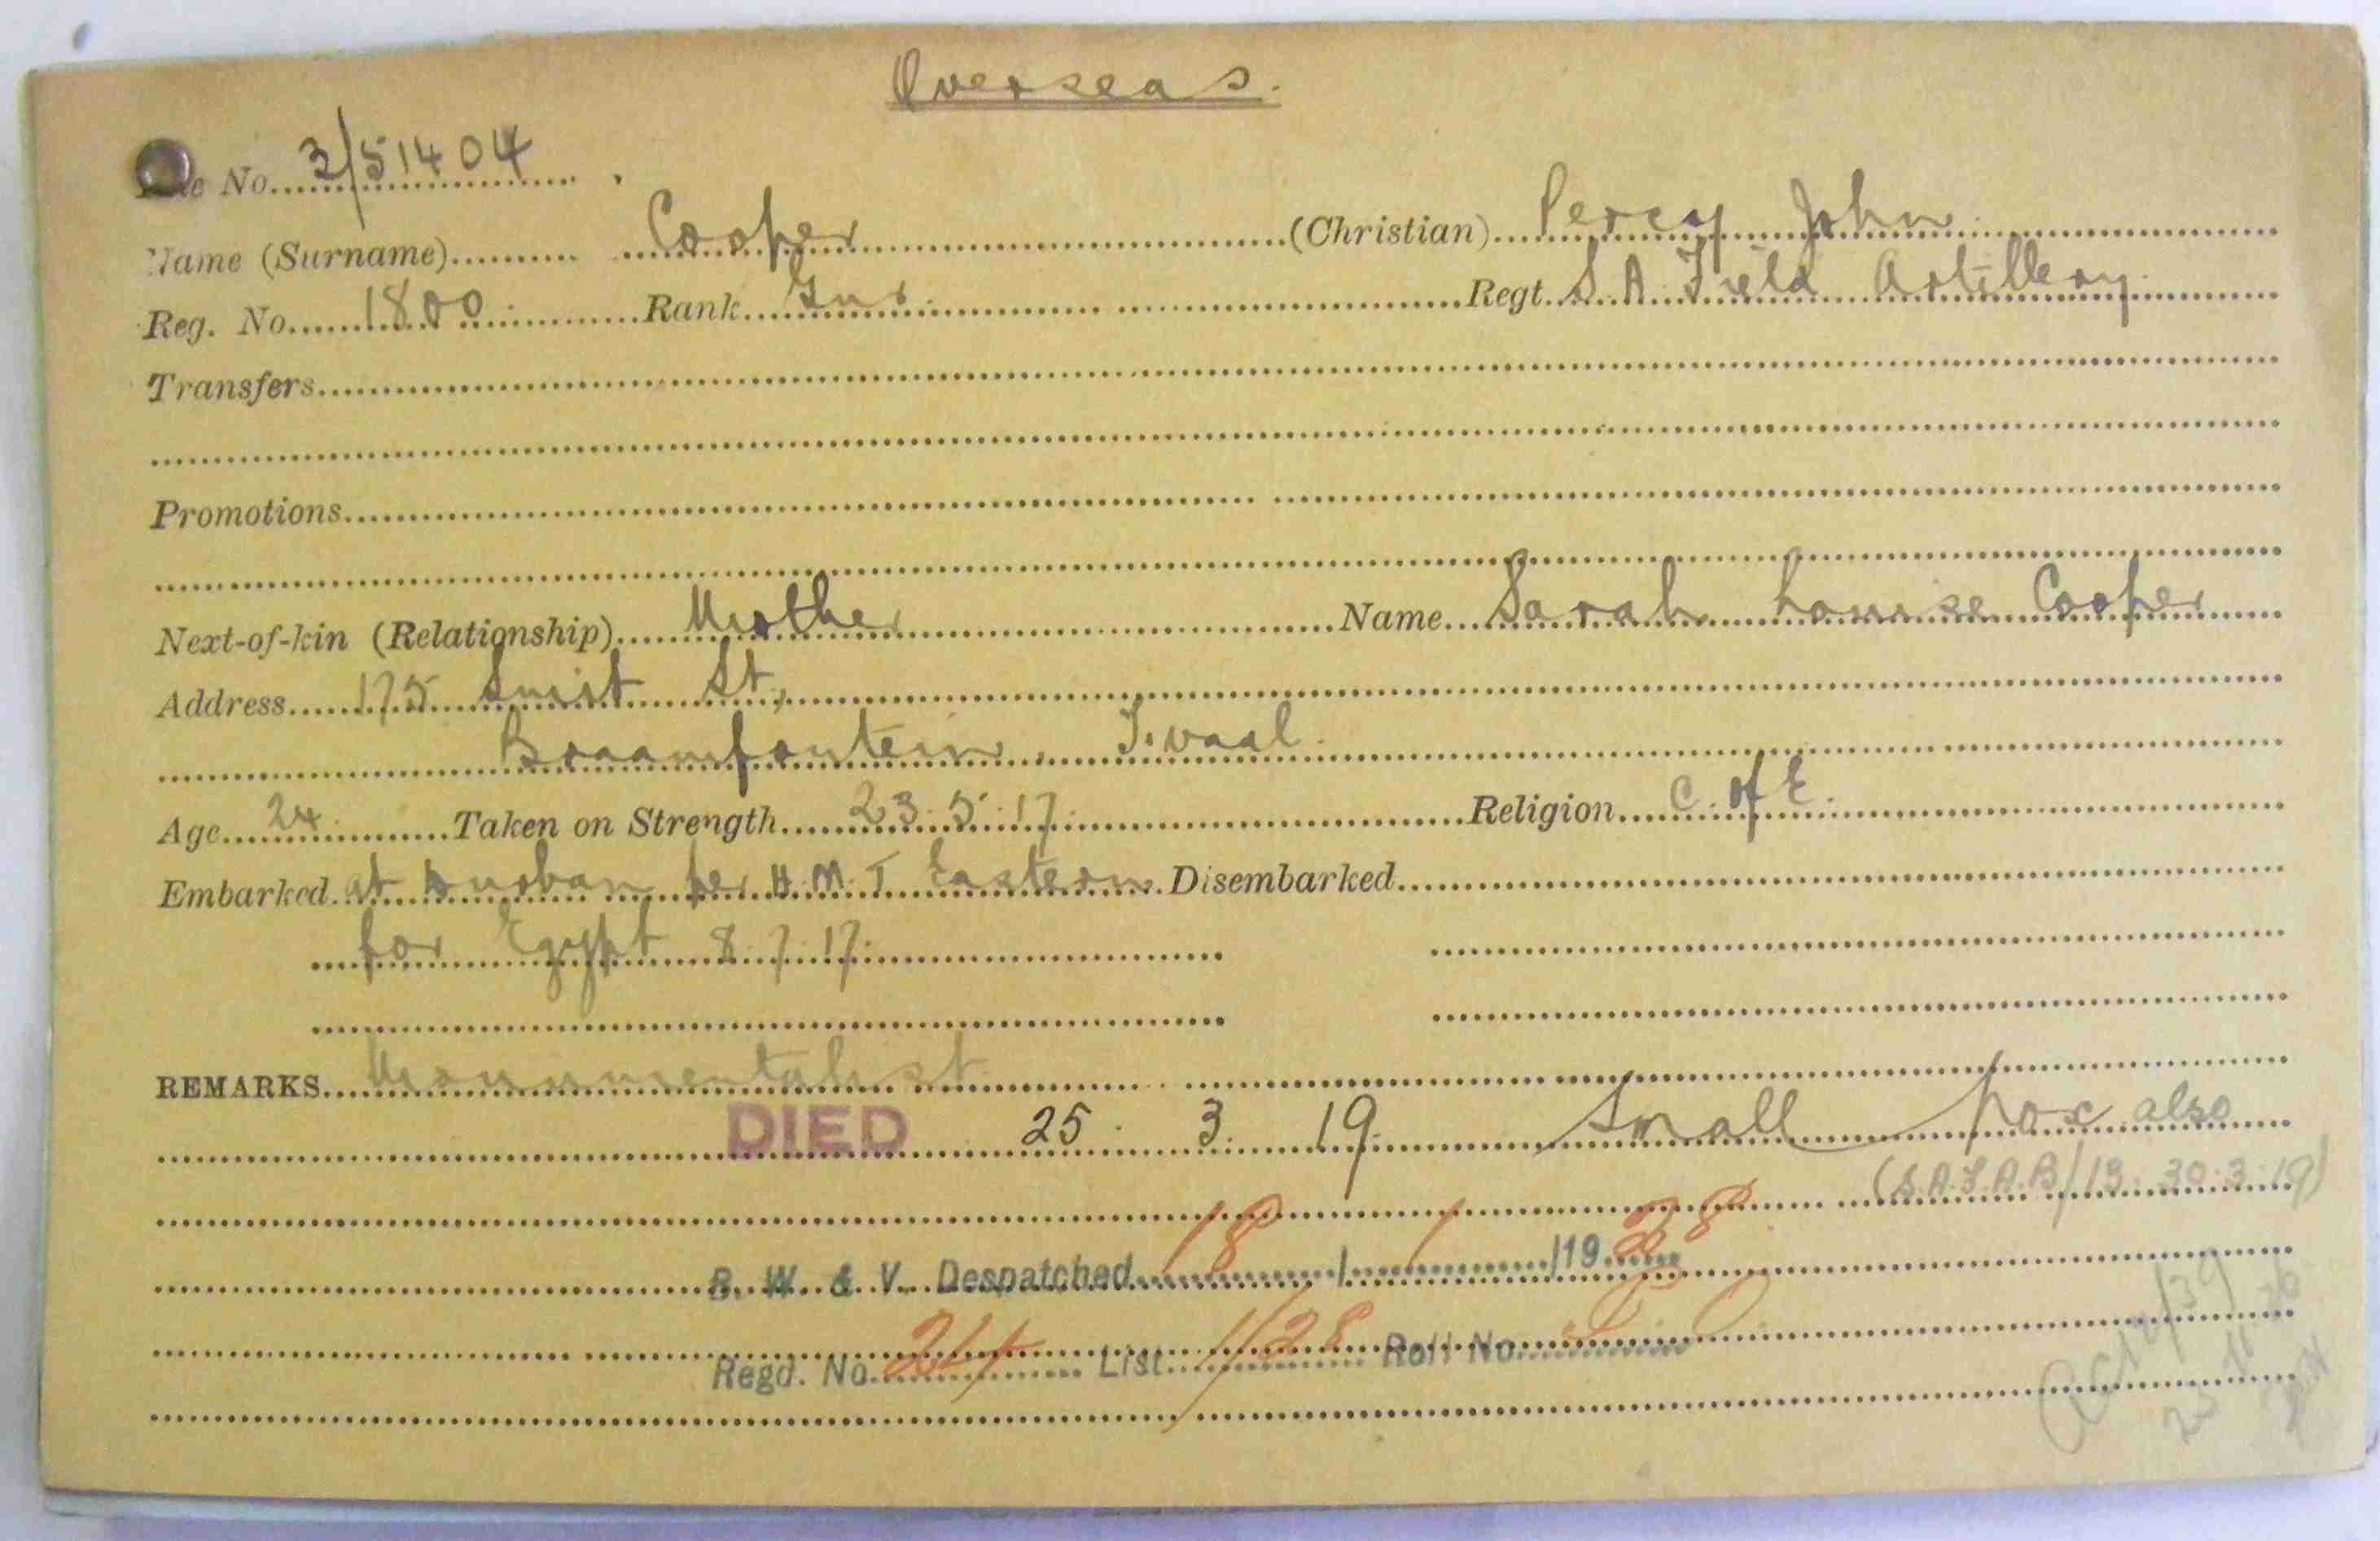 Overseas.
No. 3/51404
Name (Surname) Cooper (Christian) Percy John
Reg. No. 1800 Rank Gnr. Regt. S.A. Field Artillery
Transfers
Promotions
Next-of-kin (Relationship) Mother Name Sarah Louise Cooper
Address 175 Smit St,
Braamfontein, T.vaal.
Age 24 Taken on Strength 23.5.17. Religion C. of E.
Embarked at Durban per H.M.T. Eastern Disembarked
for Egypt 8.7.17.
REMARKS Monumentalist
DIED 25. 3. 19. Small Pox also
(S.A.F.A.B/13. 30.3.19)
B. W. & V. Despatched 18/1/1928
Regd. No. 244 List 1/28 Roll No.